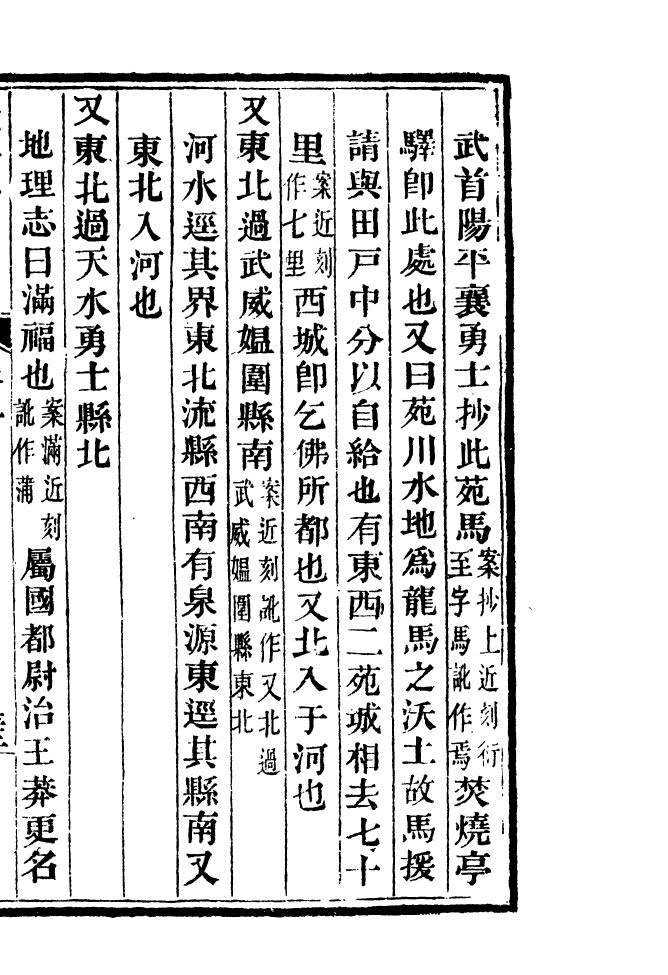 武首陽平襄勇士抄此苑馬案抄上近刻衍至字馬訛作焉焚燒亭
驛卽此處也又曰苑川水地爲龍馬之沃土故馬援
請與田戸中分以自給也有東西二苑城相去七十
里案近刻作七里西城卽乞佛所都也又北入于河也
又東北過武威媼圍縣南案近刻訛作又北過武威媼圍縣東北
河水逕其界東北流縣西南有泉源東逕其縣南又
東北入河也
又東北過天水勇士縣北
地理志曰滿福也案滿近刻訛作蒲屬國都尉治王莽更名